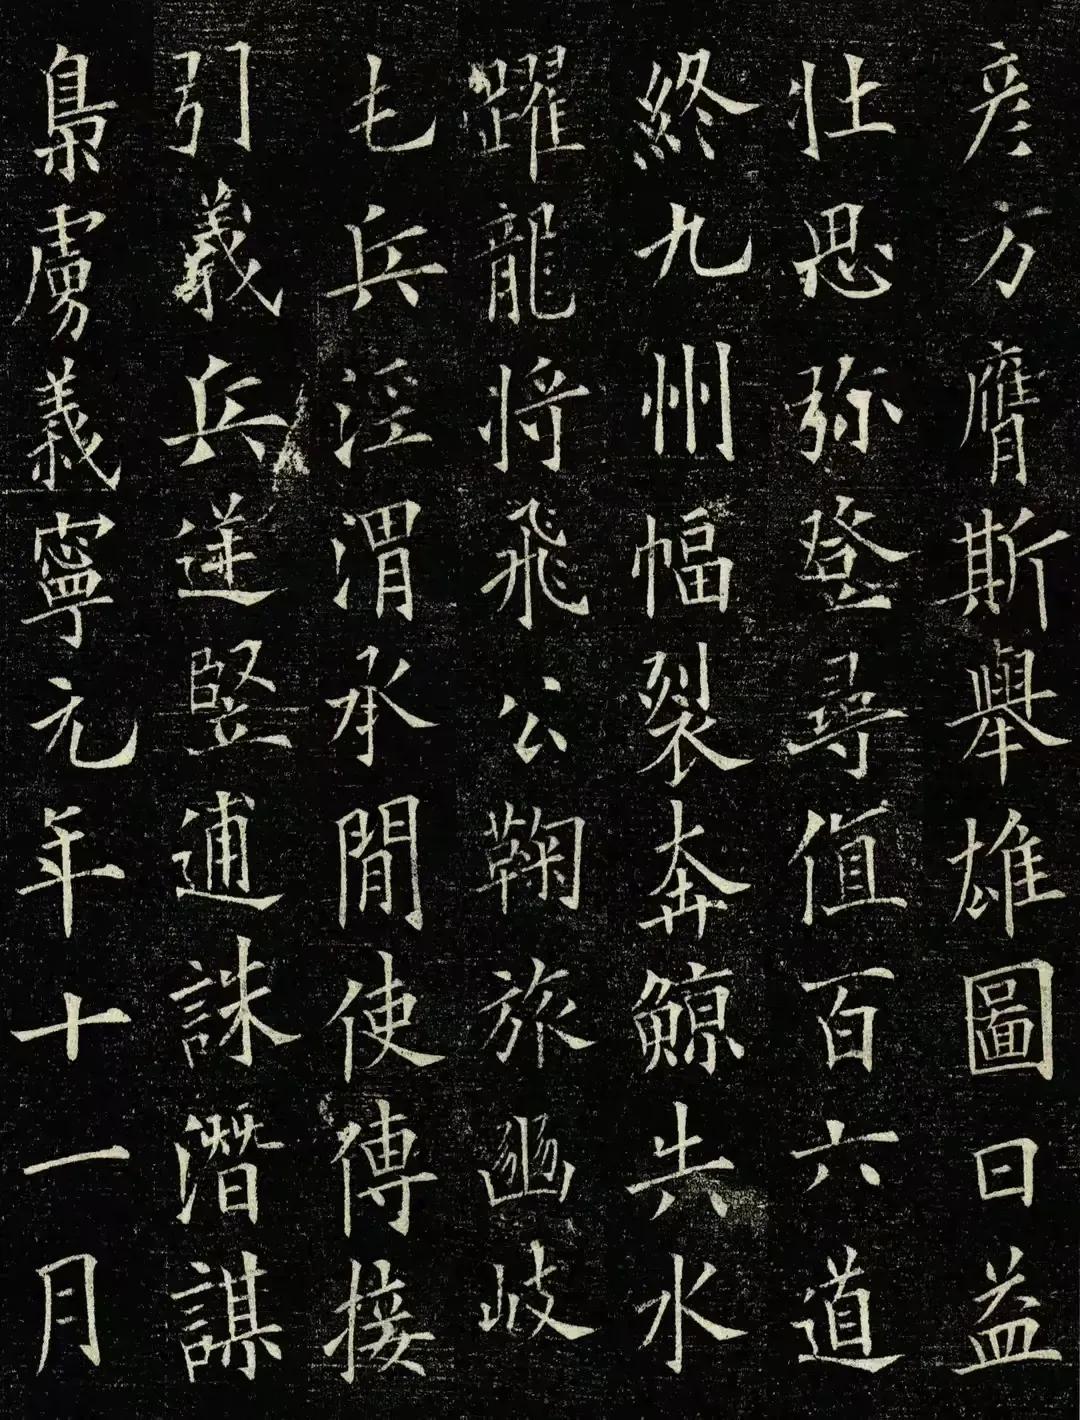 彦方膺斯舉雄圖日益
壯思弥登尋值百六道
終九州幅裂奔鯨失水
躍龍將飛公鞠旅豳岐
乇兵淫渭承閒使傳接
引義兵迸豎逋誅潛謀
梟虜義寧元年十一月